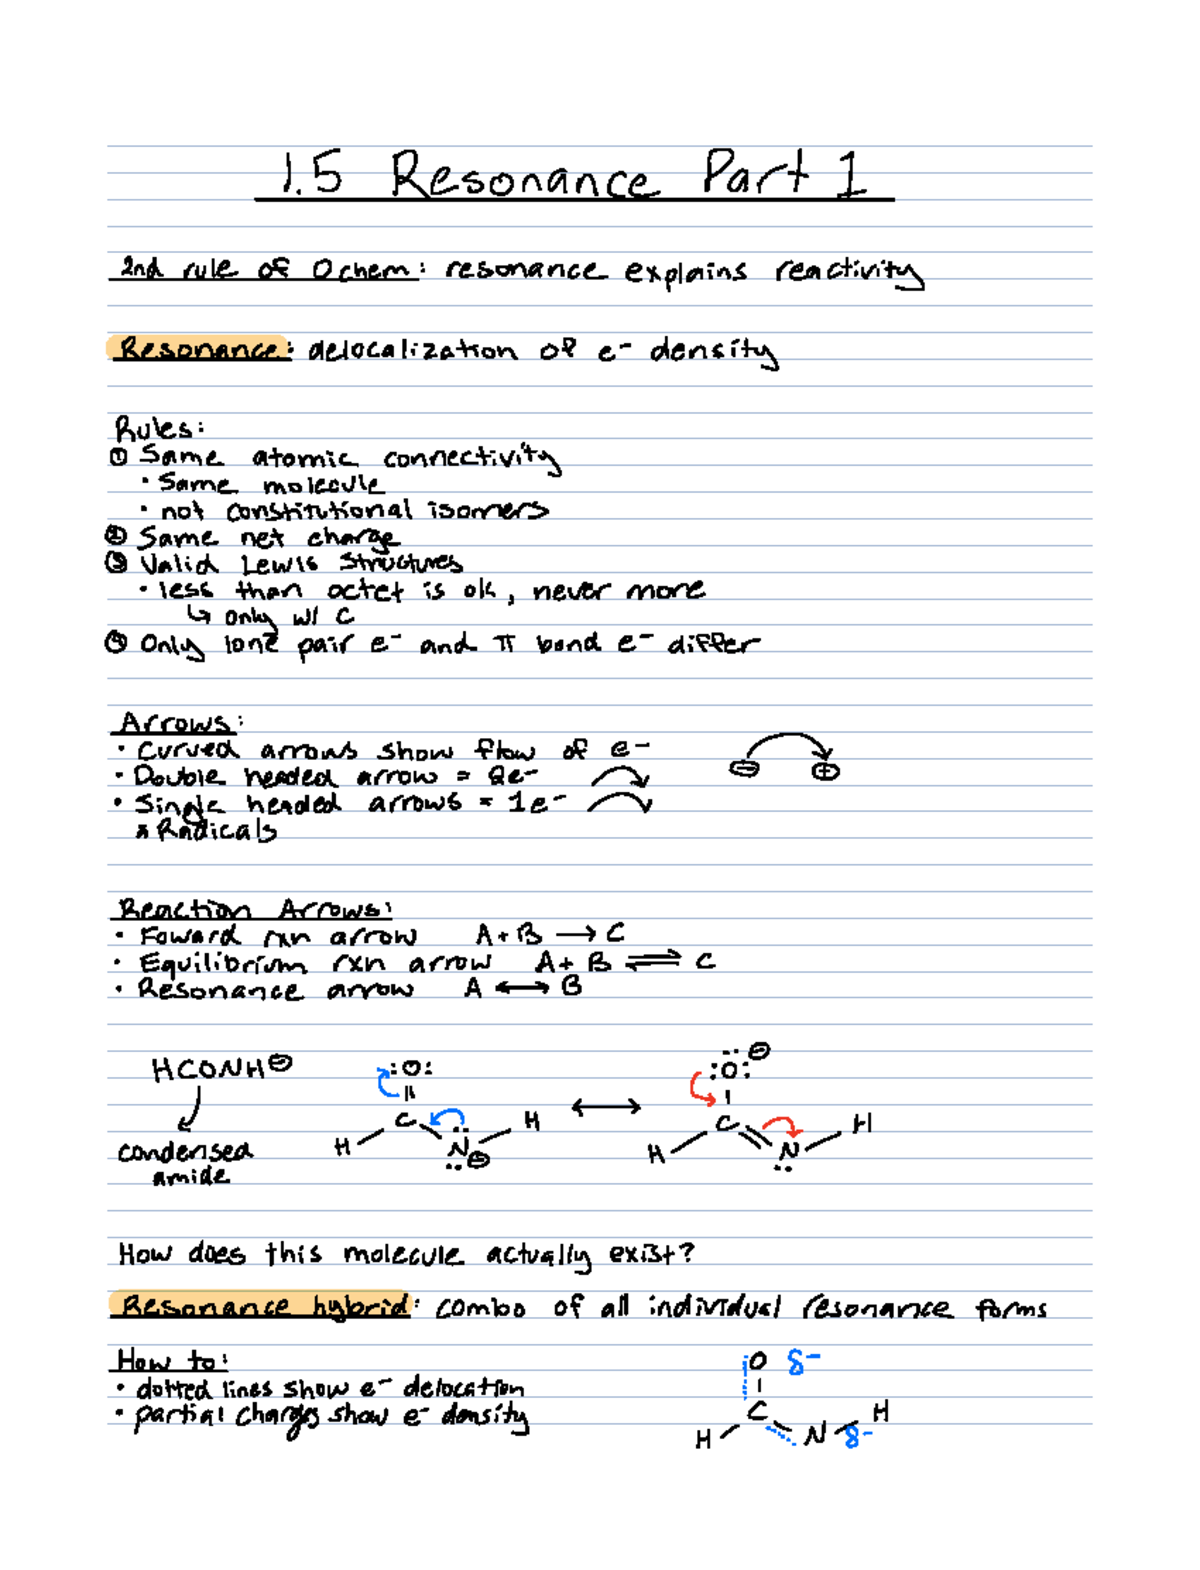 1.5 Resonance Part 1
2nd rule of Ochem: resonance explains reactivity
Resonance: delocalization of e⁻ density
Rules:
① Same atomic connectivity
• Same molecule
• not constitutional isomers
② Same net charge
③ Valid Lewis Structures
• less than octet is ok, never more
↳ only w/ C
④ Only lone pair e⁻ and π bond e⁻ differ
Arrows:
• Curved arrows show flow of e⁻
⊖ ⊕
• Double headed arrow = 2e⁻
• Single headed arrows = 1e⁻
* Radicals
Reaction Arrows:
• Foward rxn arrow A + B → C
• Equilibrium rxn arrow A + B ⇌ C
• Resonance arrow A ↔ B
HCONH⊖
condensed
amide
:O:
C
H
N
⊖
H
↔
:O:
⊖
C
H
N
H
How does this molecule actually exist?
Resonance hybrid: combo of all individual resonance forms
How to:
• dotted lines show e⁻ delocation
• partial charges show e⁻ density
O δ⁻
C
H
N
H
δ⁻